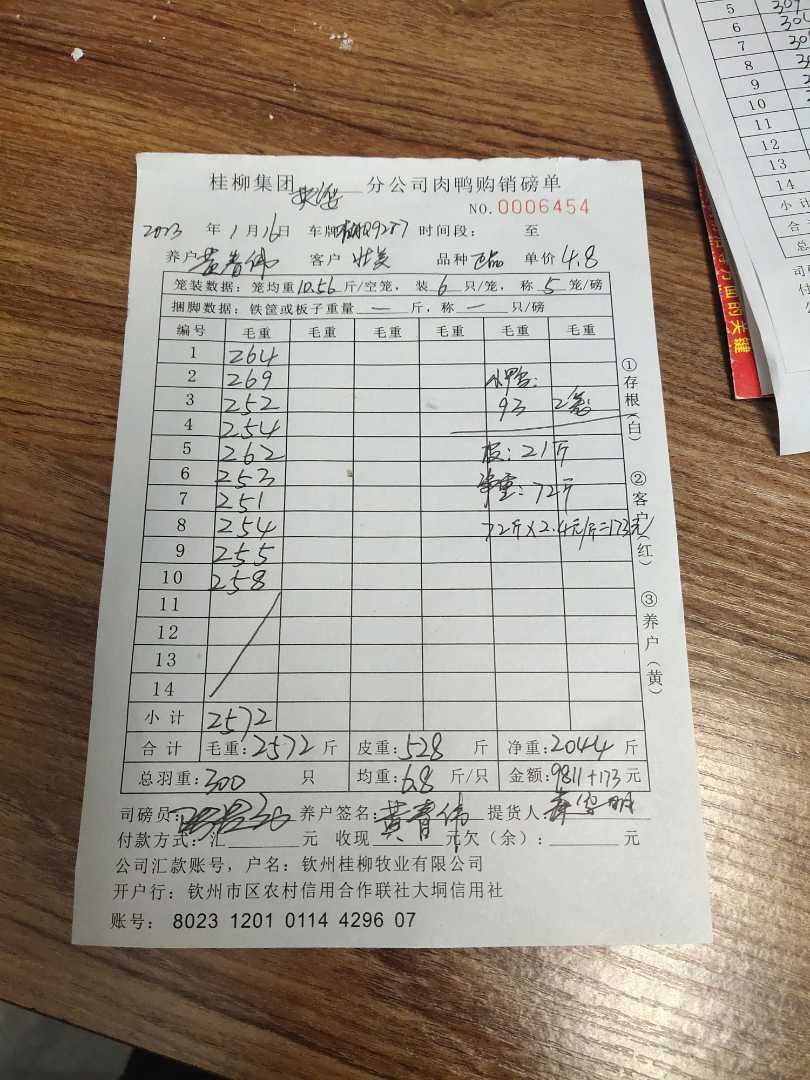 桂柳集团 分公司肉鸭购销磅单
NO.0006454
2023 年 1月 16日 车牌 Q9257 时间段： 至
养户 黄春伟 客户 壮美 品种 正品 单价 4.8
笼装数据：笼均重10.56斤/空笼，装 6 只/笼，称 5 笼/磅
捆脚数据：铁筐或板子重量 — 斤，称 — 只/磅
编号 毛重 毛重 毛重 毛重 毛重 毛重
1 264
2 269 小鸭：
3 252 93 2笼
4 254
5 262 板：21斤
6 253 净重：72斤
7 251
8 254 72斤×2.4元/斤=173元
9 255
10 258
11
12
13
14
小计 2572
合计 毛重：2572 斤 皮重：528 斤 净重：2044 斤
总羽重：300 只 均重：6.8 斤/只 金额：9811+173 元
司磅员： 养户签名：黄春伟 提货人：
付款方式：汇 元 收现 元 欠（余）： 元
公司汇款账号，户名：钦州桂柳牧业有限公司
开户行：钦州市区农村信用合作联社大垌信用社
账号：8023 1201 0114 4296 07
①存根（白）
②客户（红）
③养户（黄）
5
6
7
8
9
10
11
12
13
14
小计
面的关键